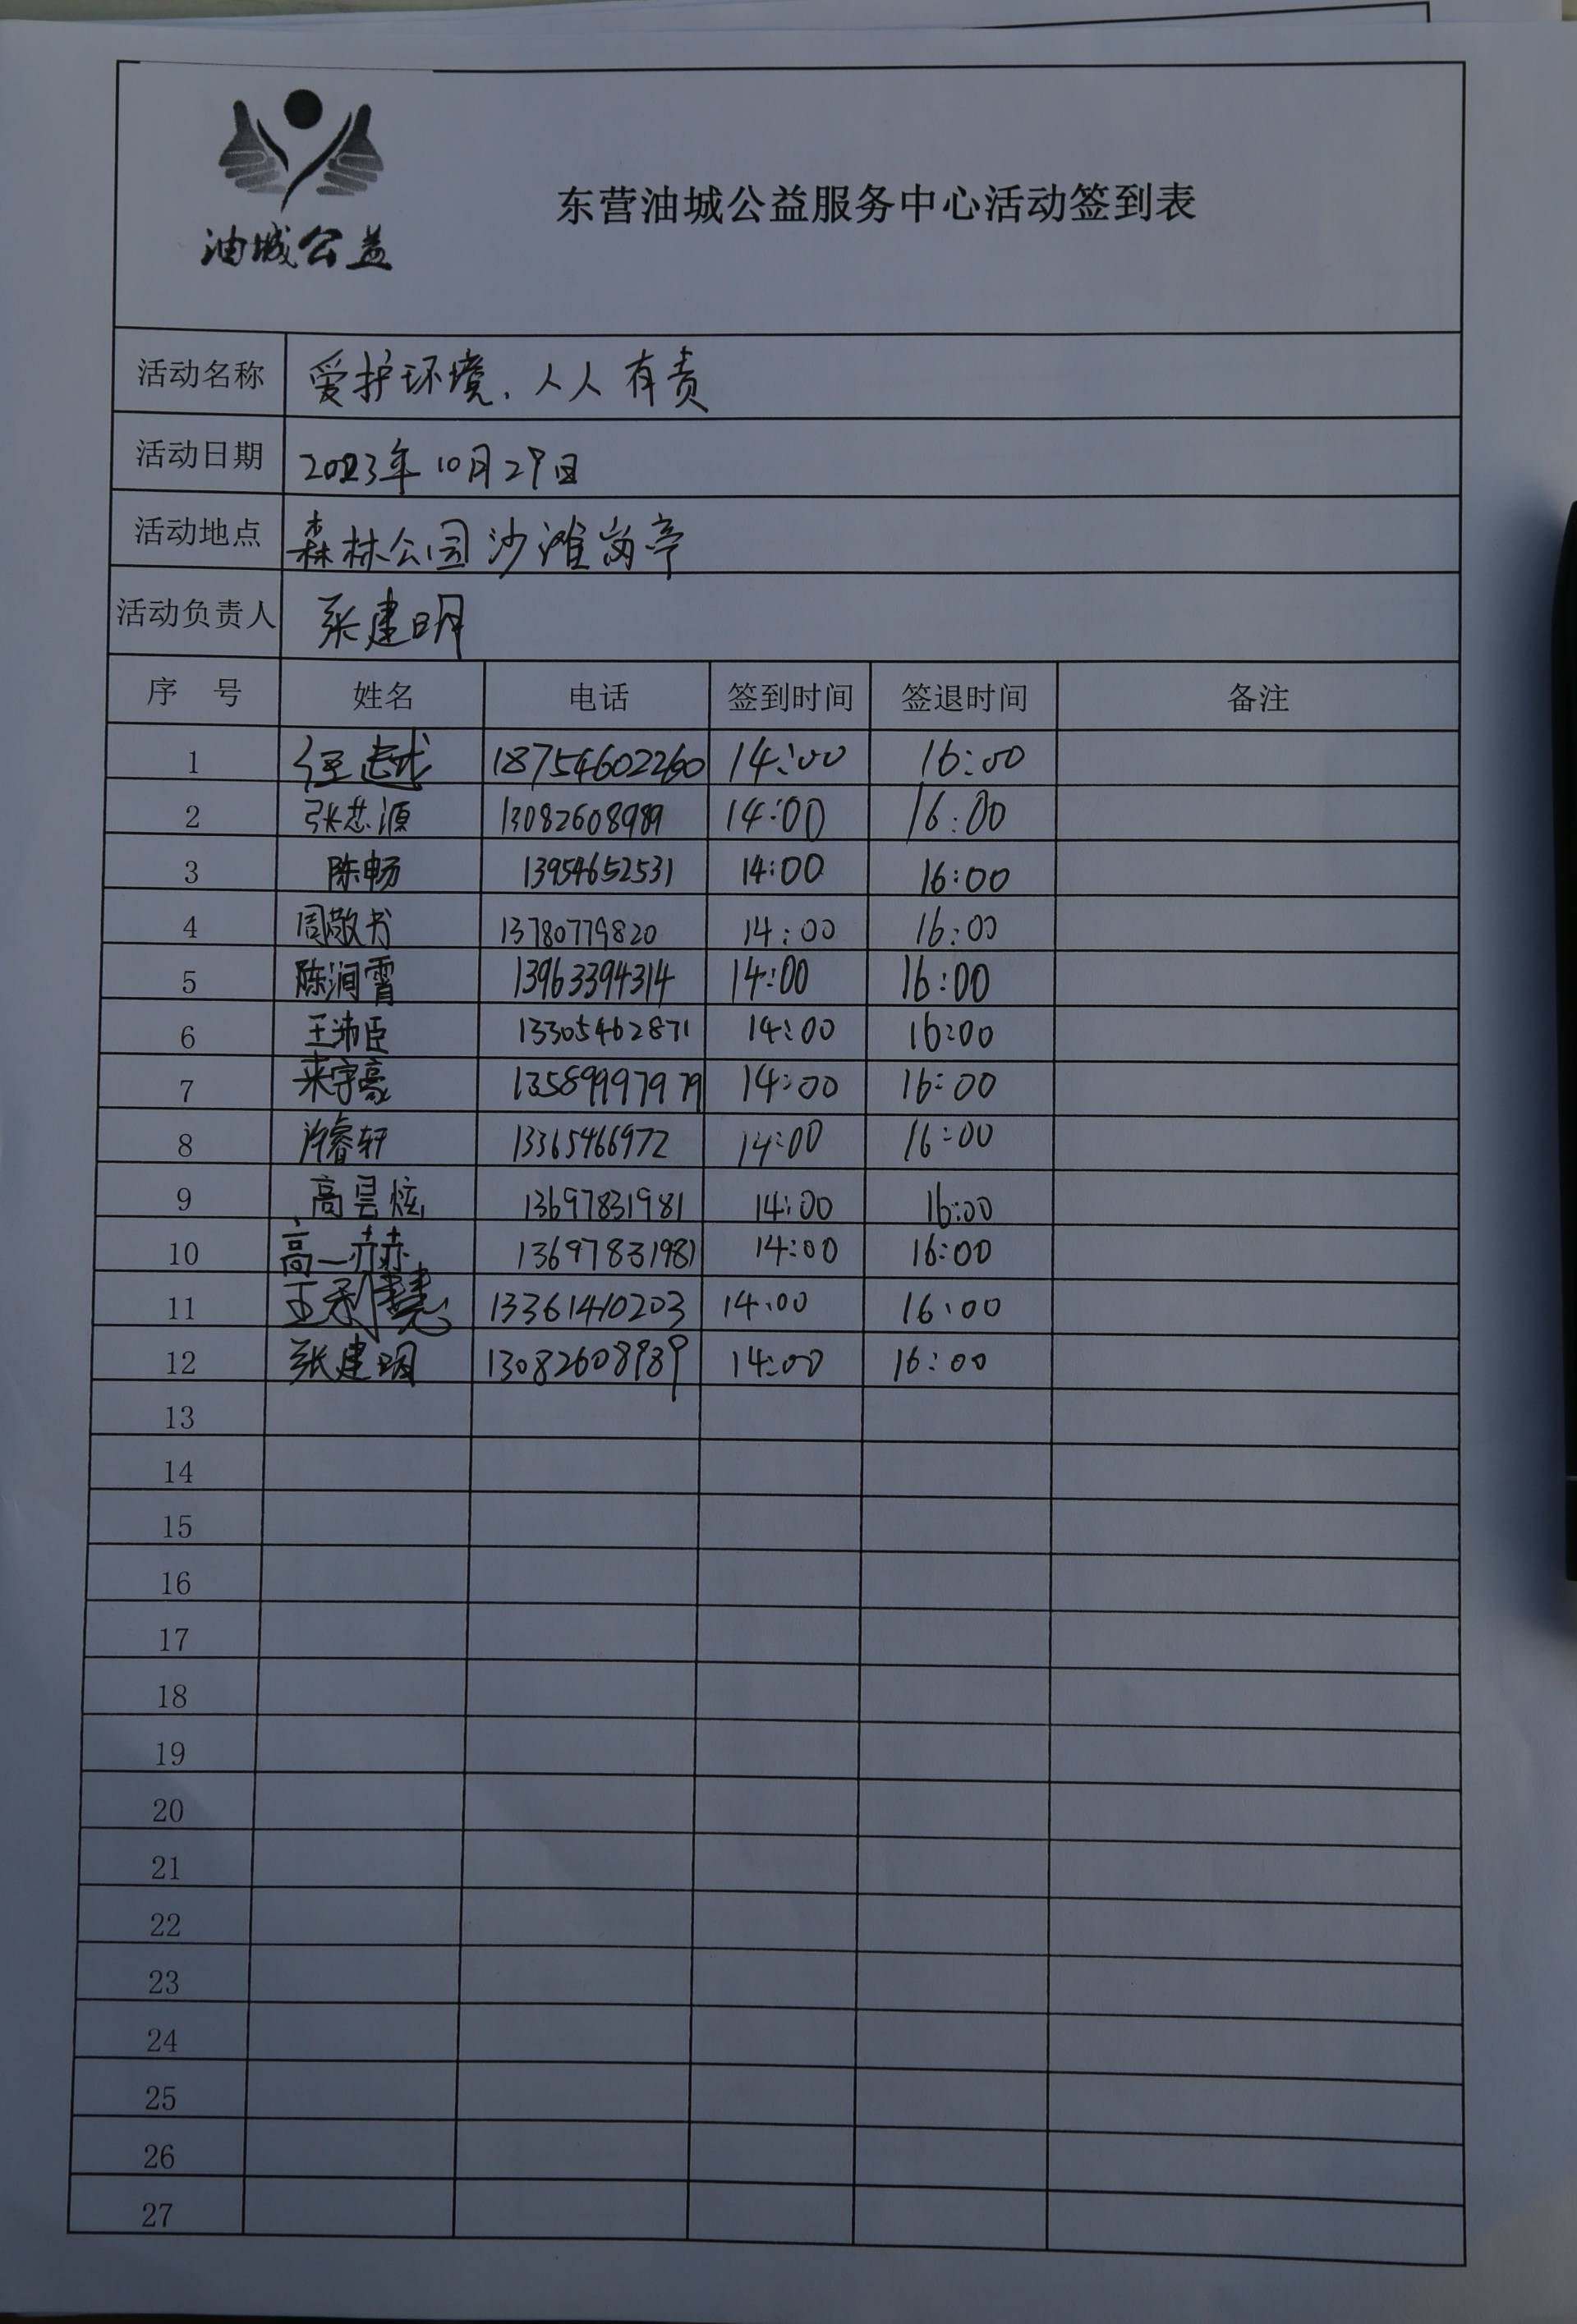 油城公益
东营油城公益服务中心活动签到表
活动名称 爱护环境，人人有责
活动日期 2023年10月29日
活动地点 森林公园沙滩岗亭
活动负责人 张建明
序 号 姓名 电话 签到时间 签退时间 备注
1 任越 18754602260 14:00 16:00
2 张芯源 13082608989 14:00 16:00
3 陈畅 13954652531 14:00 16:00
4 周敬书 13780779820 14:00 16:00
5 陈润霄 13963394314 14:00 16:00
6 王沛臣 13305462871 14:00 16:00
7 来宇豪 13589997979 14:00 16:00
8 许睿轩 13365466972 14:00 16:00
9 高昱炫 13697831981 14:00 16:00
10 高一赫 13697831981 14:00 16:00
11 王利慧 13361410203 14:00 16:00
12 张建明 13082608989 14:00 16:00
13
14
15
16
17
18
19
20
21
22
23
24
25
26
27